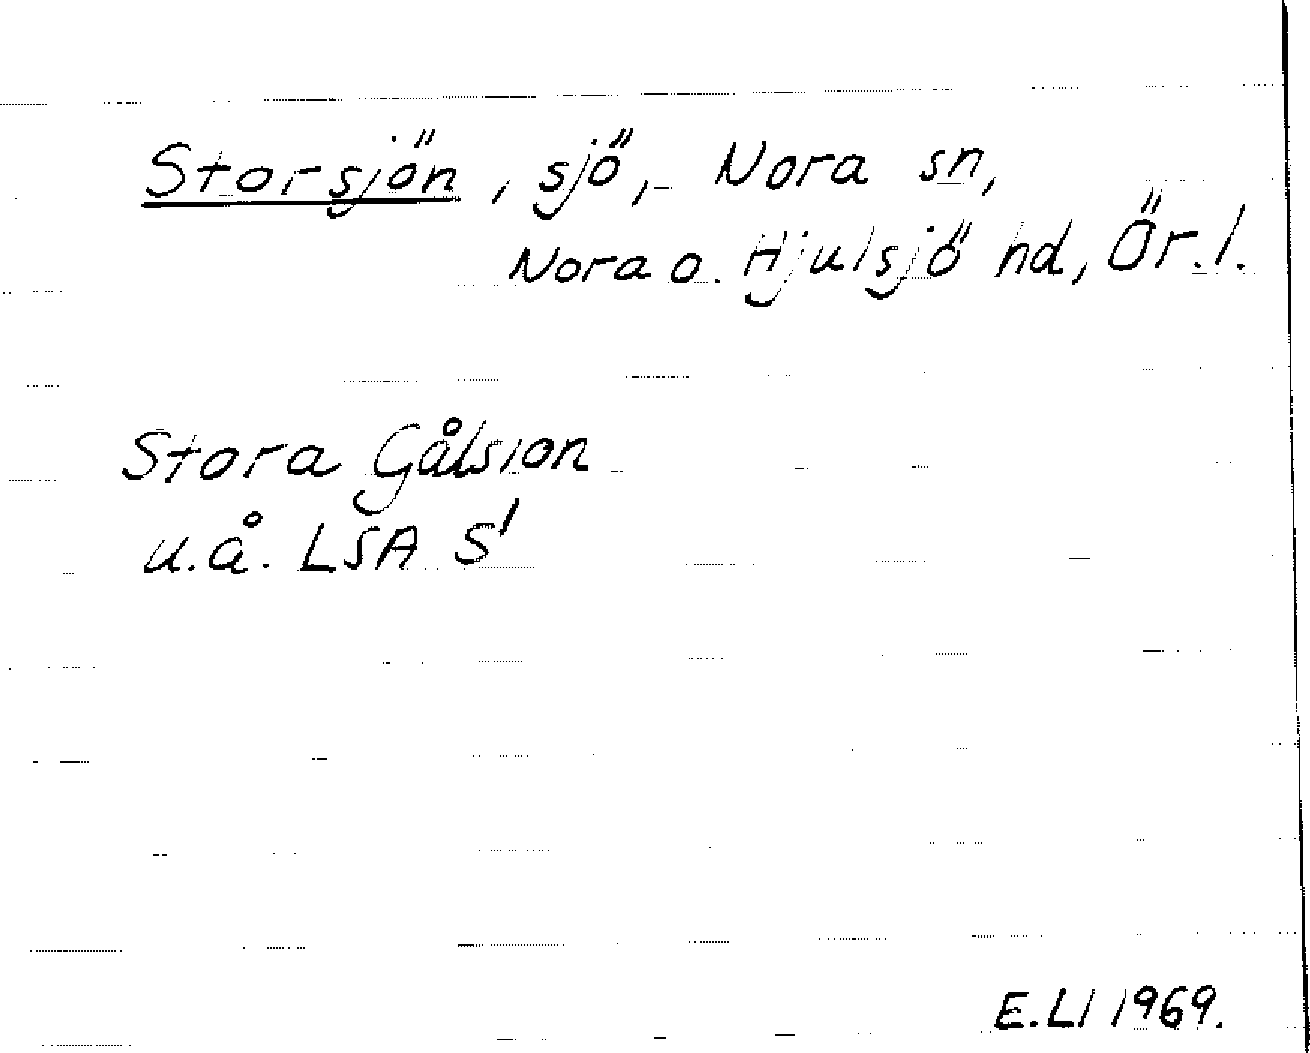 Storsjön, sjö, Nora sn,
Nora o. Hjulsjö hd, Ör.l.
Stora Gålsion
u.å. LSA S1
E.Ll 1969.